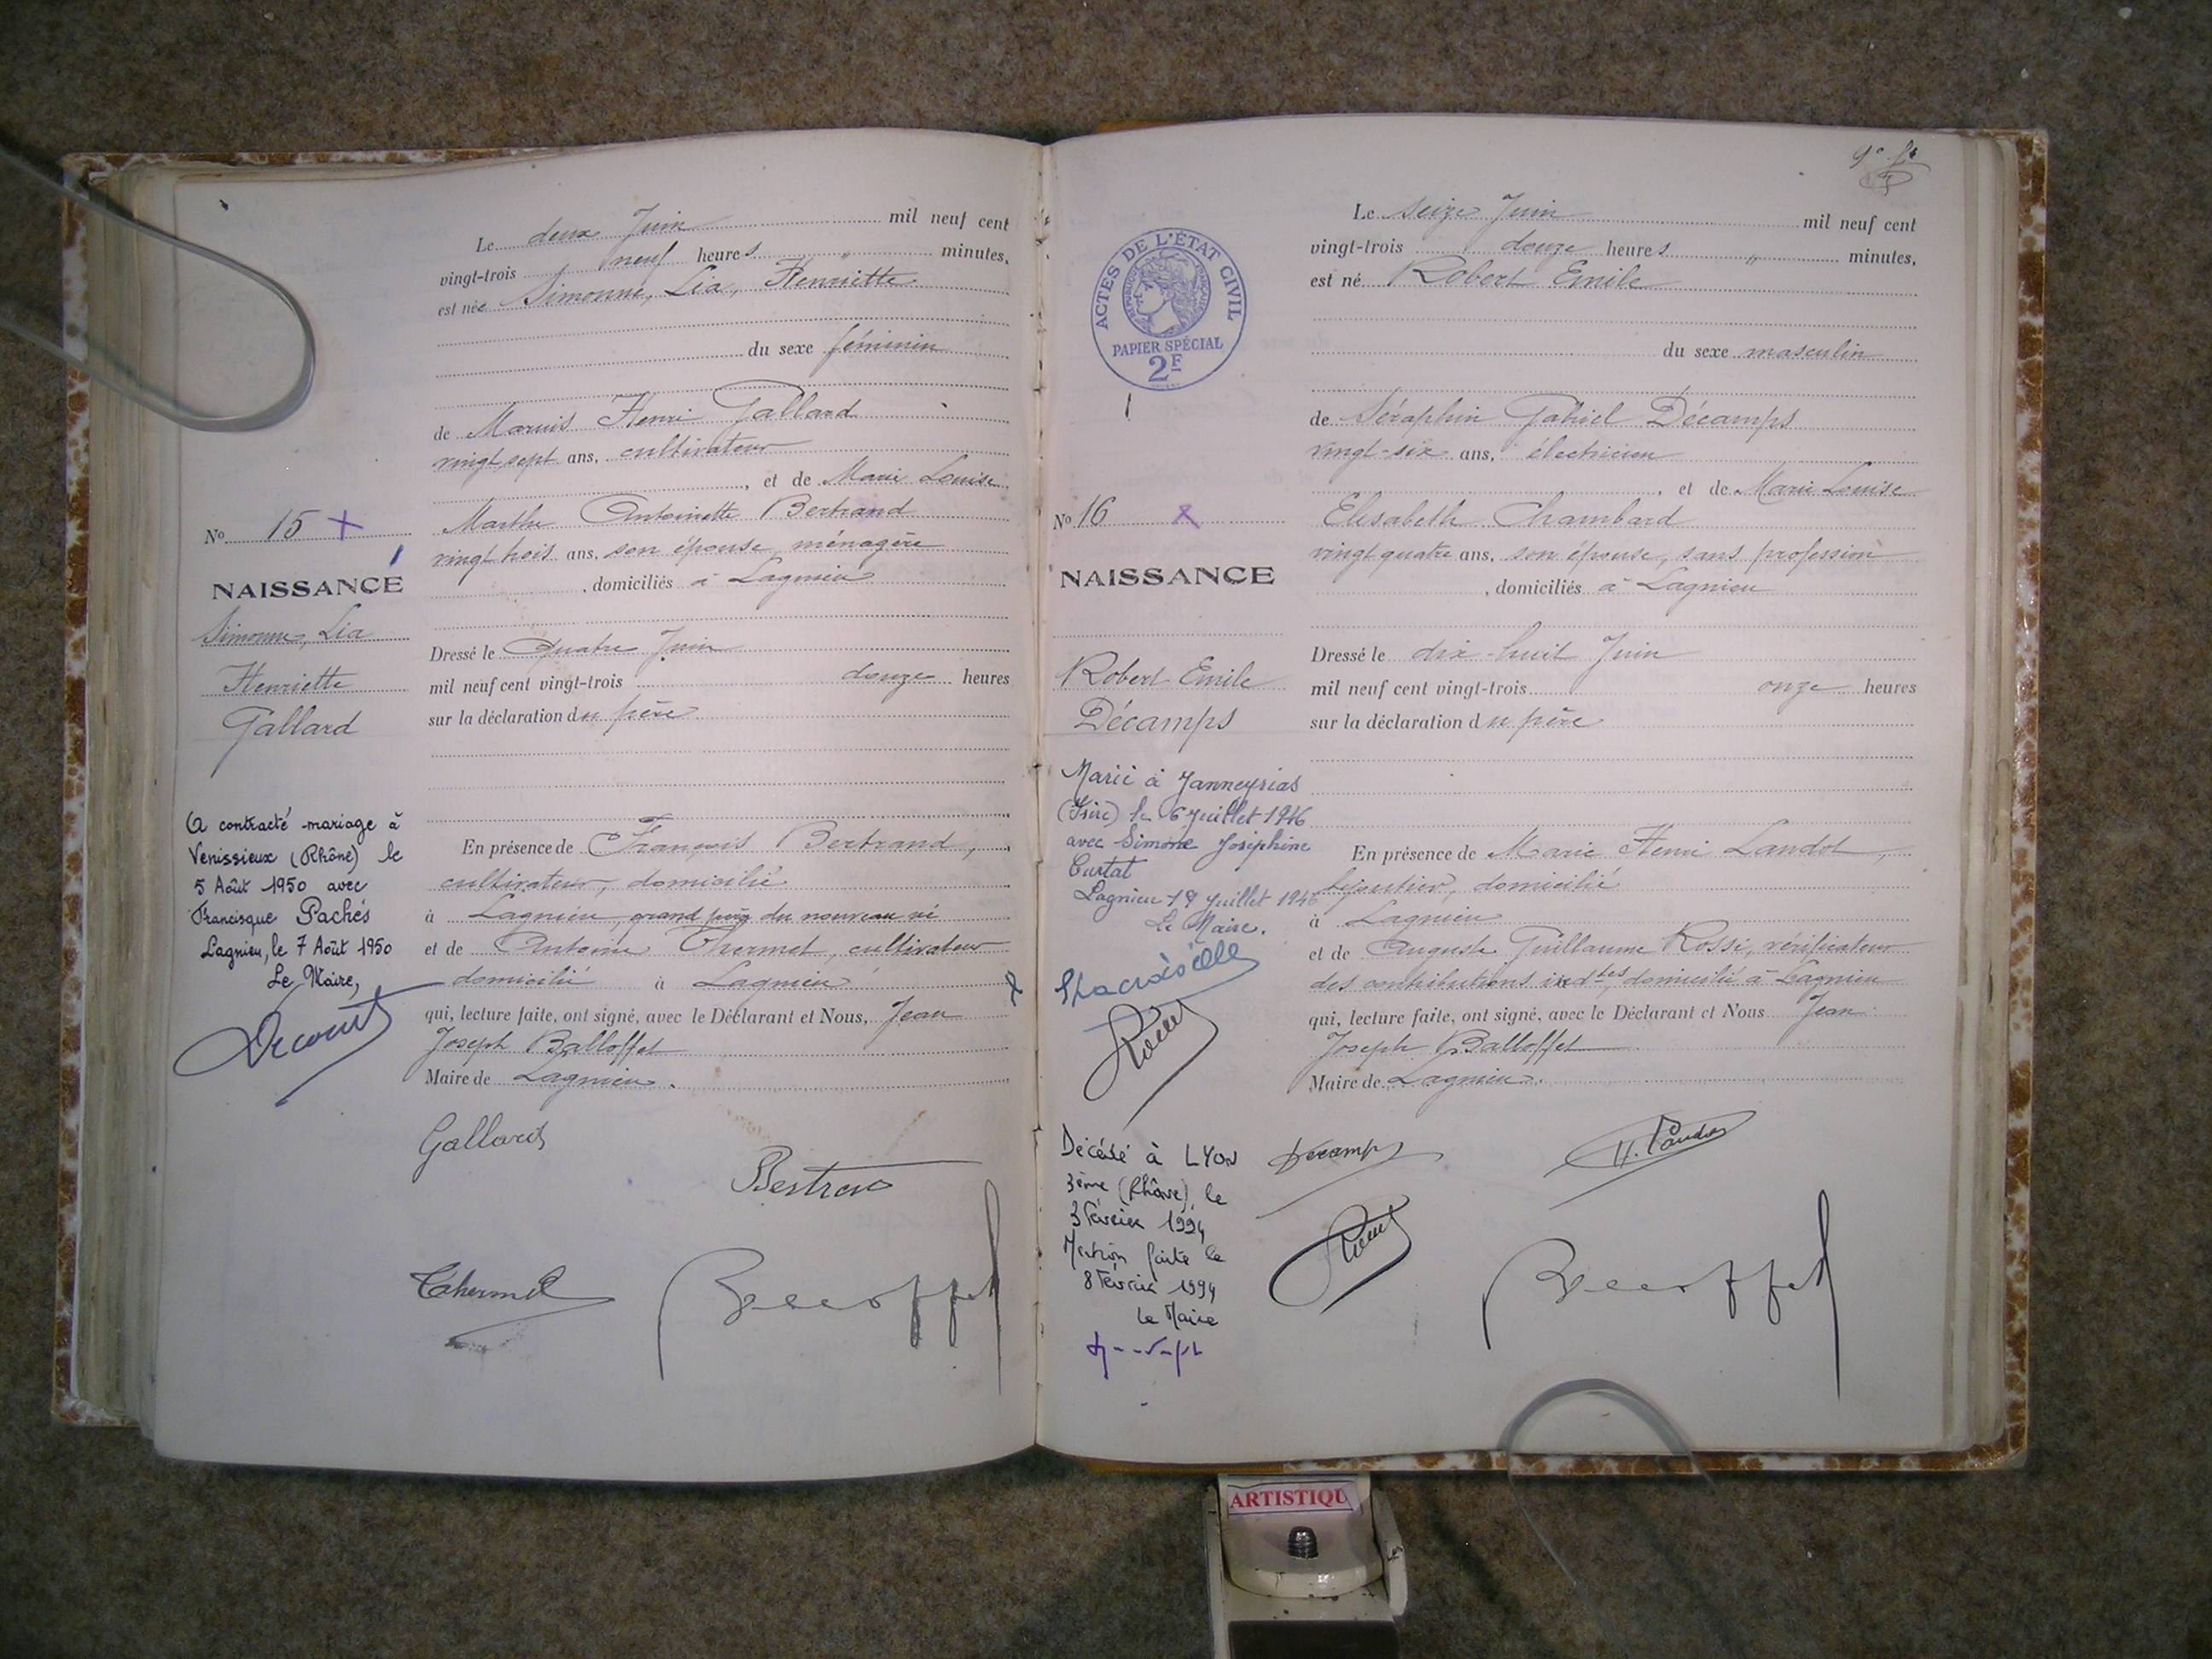 Le deux Juin mil neuf cent
vingt-trois neuf heures " minutes,
est née Simonne, Lia, Henriette
du sexe féminin
de Marius Henri Gallard
vingt sept ans, cultivateur
, et de Marie Louise
Marthe Antoinette Bertrand
vingt trois ans, son épouse, ménagère
, domiciliés à Lagnieu
Dressé le Quatre Juin
mil neuf cent vingt-trois douze heures
sur la déclaration du père
En présence de François Bertrand,
cultivateur, domicilié
à Lagnieu, grand père du nouveau né
et de Antoine Thermet, cultivateur
domicilié à Lagnieu
qui, lecture faite, ont signé, avec le Déclarant et Nous, Jean
Joseph Balloffet
Maire de Lagnieu.
No 15
NAISSANCE
Simonne, Lia
Henriette
Gallard
A contracté mariage à
Venissieux (Rhône) le
5 Août 1950 avec
Francisque Pachés
Lagnieu, le 7 Août 1950
Le Maire,
Gallard
Bertrand
Thermet
Balloffet
ACTES DE L'ÉTAT CIVIL
PAPIER SPÉCIAL
2F
Le seize Juin mil neuf cent
vingt-trois douze heures " minutes,
est né Robert Emile
du sexe masculin
de Séraphin Gabriel Décamps
vingt-six ans, électricien
, et de Marie Louise
Elisabeth Chambard
vingt quatre ans, son épouse, sans profession
, domiciliés à Lagnieu
Dressé le dix-huit Juin
mil neuf cent vingt-trois onze heures
sur la déclaration du père
En présence de Marie Henri Landot,
bijoutier, domicilié
à Lagnieu
et de Auguste Guillaume Rossi, vérificateur
des contributions indtes, domicilié à Lagnieu
qui, lecture faite, ont signé, avec le Déclarant et Nous Jean
Joseph Balloffet
Maire de Lagnieu.
No 16
NAISSANCE
Robert Emile
Décamps
Marié à Janneyrias
(Isère) le 6 Juillet 1946
avec Simone Joséphine
Curtat
Lagnieu 19 Juillet 1946
Le Maire.
Décédé à LYON
3ème (Rhône) le
3 Février 1994
Mention faite le
8 Février 1994
Le Maire
Decamps
H. Landot
Balloffet
ARTISTIQU